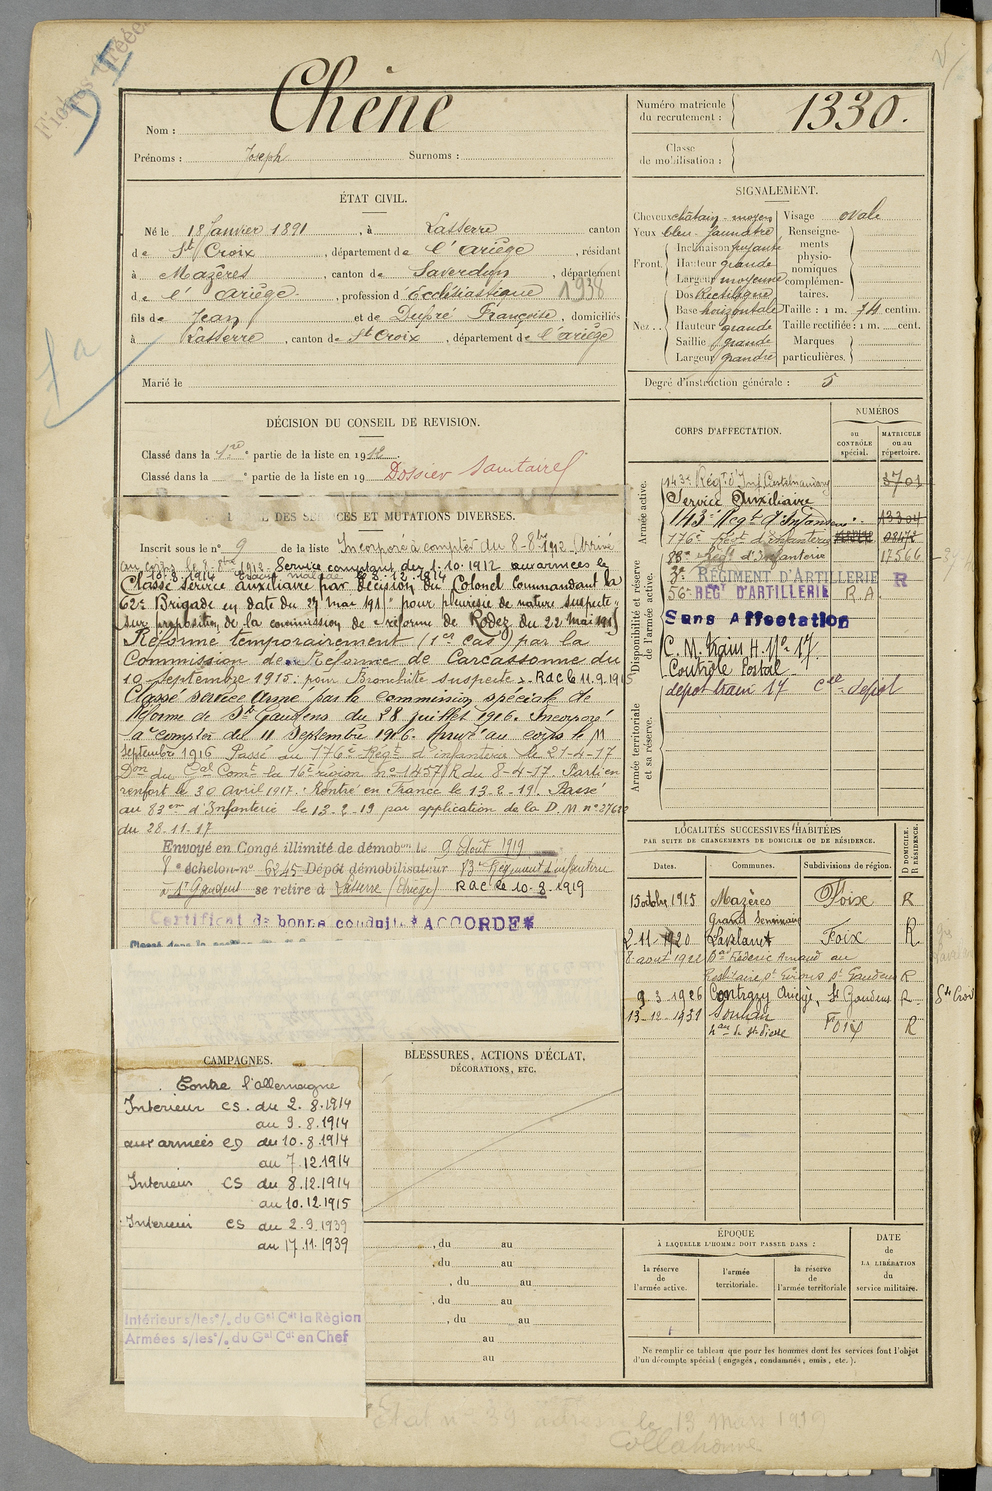 Fiches Créées
Nom : Chêne
Prénoms : Joseph Surnoms :
Numéro matricule du recrutement : 1330.
Classe de mobilisation :
ÉTAT CIVIL.
Né le 18 Janvier 1891, à Lasserre canton
de St Croix, département de l'Ariège, résidant
à Mazères, canton de Saverdun, département
de l'Ariège, profession d'Ecclésiastique 1938
fils de Jean et de Dupré Françoise, domiciliés
à Lasserre, canton de St Croix, département de l'Ariège
Marié le
SIGNALEMENT.
Cheveux châtain-moyen Visage ovale
Yeux bleu-jaunâtre Renseigne-
Front. Inclinaison fuyante ments
Hauteur grande physio-
Largeur moyenne nomiques
Nez.. Dos Rectiligne complémen-
taires.
Base horizontale Taille : 1 m. 74 centim.
Hauteur grande Taille rectifiée : 1 m. cent.
Saillie grande Marques
Largeur grande particulières.
Degré d'instruction générale : 5
DÉCISION DU CONSEIL DE REVISION.
Classé dans la 1re partie de la liste en 1912.
Classé dans la partie de la liste en 19 Dossier Sanitaire
DES SERVICES ET MUTATIONS DIVERSES.
Inscrit sous le n° 9 de la liste Incorporé à compter du 8-8bre 1912. Arrivé
au corps le 8-8bre 1912. Service comptant du 1.10.1912 aux armées le
10.8.1914 Evacué malade le 8.12.1914
Classé service auxiliaire par décision du Colonel Commandant la
62e Brigade en date du 27 mai 191 pour pleurésie de nature suspecte
sur proposition de la commission de réforme de Rodez du 22 mai 1915
Réformé temporairement (1er cas) par la
Commission de Réforme de Carcassonne du
10 septembre 1915. pour Bronchite suspecte. RdC le 11.9.1915
Classé service Armé par la commission spéciale de
Réforme de St Gaudens du 28 juillet 1916. Incorporé
à compter du 11 Septembre 1916. Arrivé au corps le 11
Septembre 1916 Passé au 176e Régt d'infanterie le 21-4-17
Don du Gal Comt la 16e région n° 1457/R du 8-4-17. Parti en
renfort le 30 Avril 1917. Rentré en France le 13-2-19. Passé
au 83e d'Infanterie le 13-2-19 par application de la D.M. n°
du 28-11-17
Envoyé en Congé illimité de démob le 9 Août 1919
8e échelon n° 6245 Dépôt démobilisateur 83e Régiment d'infanterie
à St Gaudens se retire à Lasserre (Ariège) RdC le 10.8.1919
Certificat de bonne conduite "ACCORDE"
CORPS D'AFFECTATION.
NUMÉROS
au CONTRÔLE spécial.
MATRICULE ou au répertoire.
Armée active.
143e Régt d'Inf Castelnaudary 3701
Service Auxiliaire
143e Régt d'Infanterie 13304
176e Régt d'infanterie
Disponibilité et réserve de l'armée active.
83e Régt d'Infanterie 17566
3e RÉGIMENT D'ARTILLERIE R
56e REGt D'ARTILLERIE R.A.
Sans Affectation
C.M. Train H. N° 17.
Contrôle Postal
dépôt train 17 Cie dépôt
Armée territoriale et sa réserve.
LOCALITÉS SUCCESSIVES HABITÉES
PAR SUITE DE CHANGEMENTS DE DOMICILE OU DE RÉSIDENCE.
Dates. Communes. Subdivisions de région. D DOMICILE. R RÉSIDENCE.
15 octbre 1915 Mazères Foix R
Grand Séminaire
2-11-1920 Lavelanet Foix R
8 août 1922 Frédéric Arnaud au
St Girons St Gaudens R
9-3-1926 Contrazy Ariège, St Gaudens R. Ste Croix
13-12-1931 Soulan Foix R
CAMPAGNES.
Contre l'allemagne
Intérieur CS. du 2.8.1914
au 9.8.1914
aux armées CD du 10.8.1914
au 7.12.1914
Intérieur CS du 8.12.1914
au 10.12.1915
Intérieur CS du 2.9.1939
au 17.11.1939
Intérieur s/les °/. du Gal Cdt la Région
Armées s/les °/. du Gal Cdt en Chef
BLESSURES, ACTIONS D'ÉCLAT,
DÉCORATIONS, ETC.
, du au
, du au
, du au
, du au
, du au
au
au
ÉPOQUE
À LAQUELLE L'HOMME DOIT PASSER DANS :
la réserve de l'armée active.
l'armée territoriale.
la réserve de l'armée territoriale
DATE de LA LIBÉRATION du service militaire.
Ne remplir ce tableau que pour les hommes dont les services font l'objet
d'un décompte spécial (engagés, condamnés, omis, etc.).
Etat n° 39 adressé le 13 Mars 1939